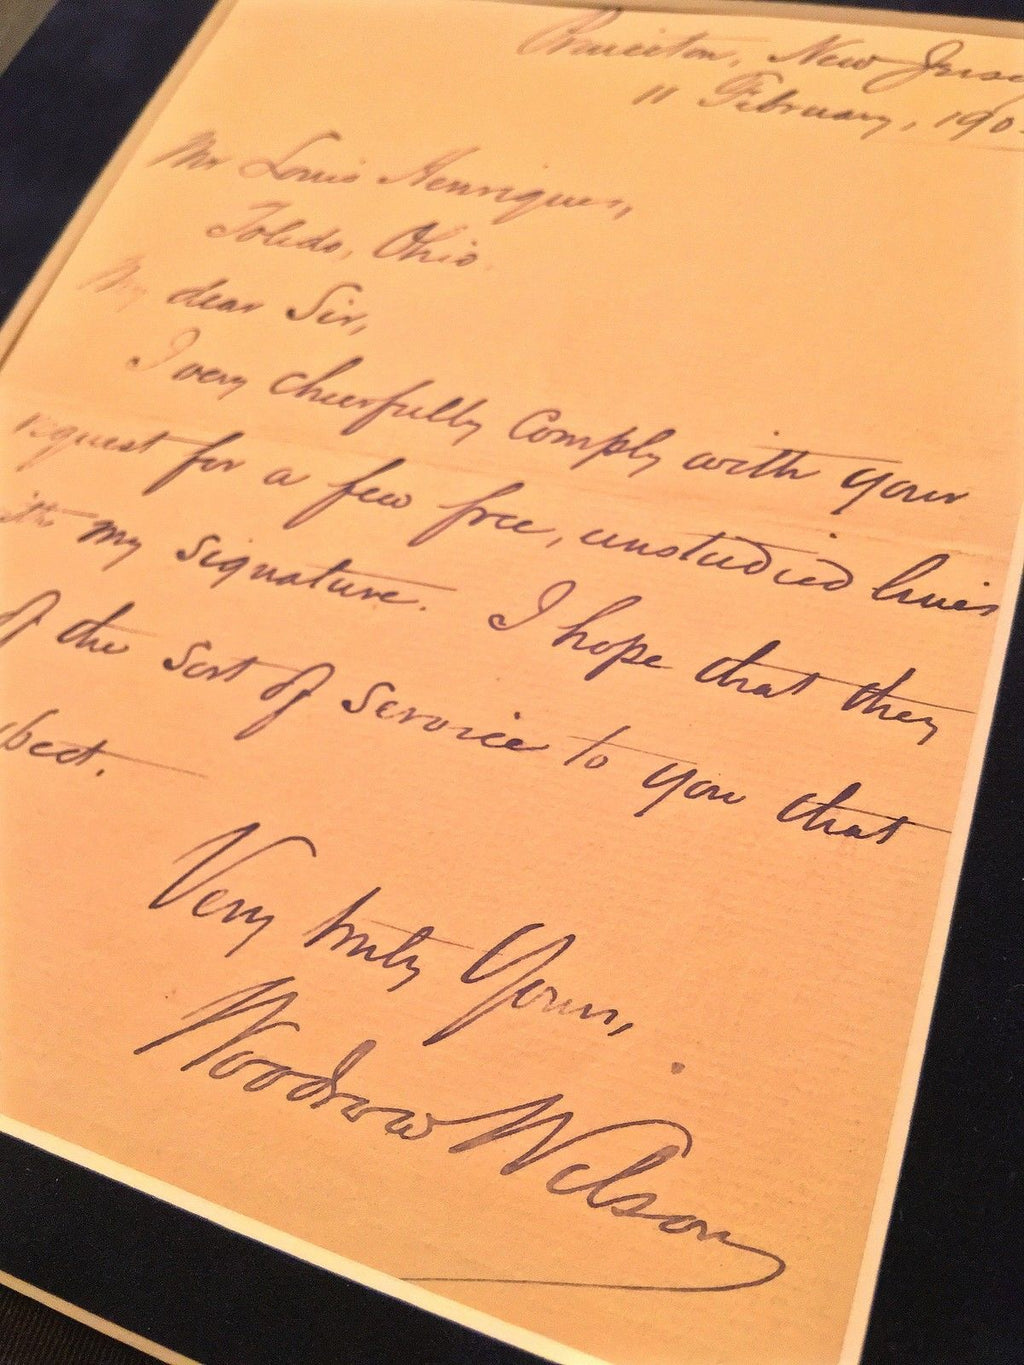 Princeton, New Jersey
11 February, 190
Mr Louis Henriques,
Toledo, Ohio.
My dear Sir,
I very cheerfully comply with your
request for a few free, unstudied lines
with my signature. I hope that they
of the sort of service to you that
Very truly Yours,
Woodrow Wilson